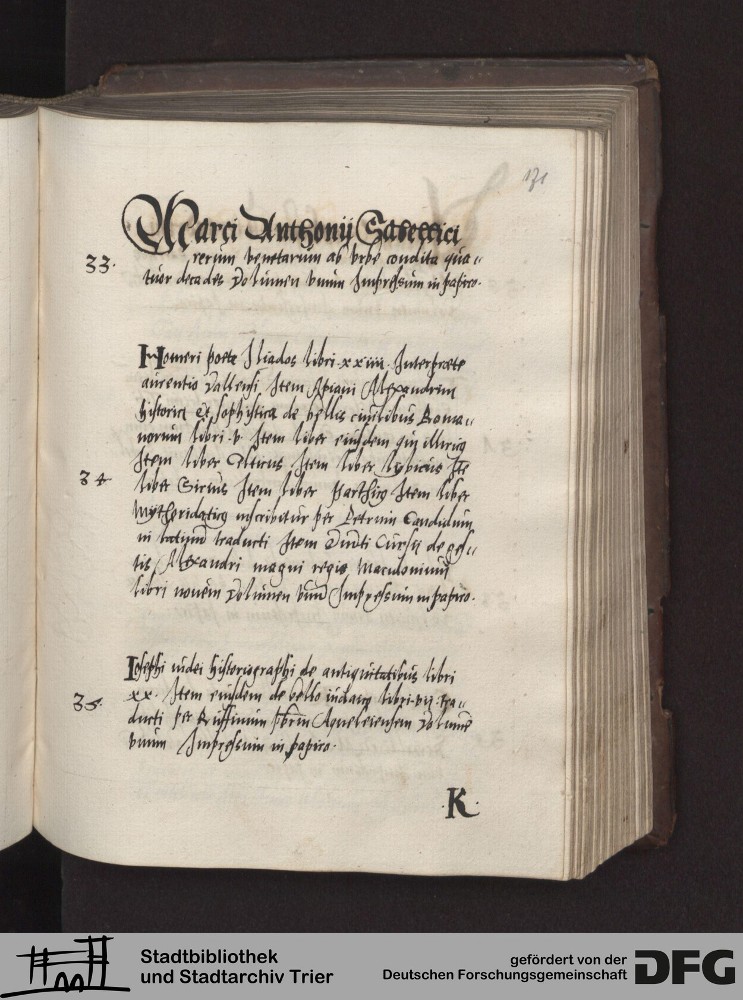 171
Marci Anthonij Sabellici
33. rerum venetarum ab vrbe condita qua„
tuor decades Volumen vnum Impressum in papiro.
Homeri poete Iliados libri xxiiij. Interprete
aurentio Vallensi Item Apiani Alexandrini
historici et sophistica de bellis ciuilibus Roma„
norum libri v Item liber eiusdem qui illirig
Item liber Celticus Item liber lybicus Ite
34 liber Sirius Item liber parthicg Item liber
Mytheridaticg inscribitur per Petrum Candidum
in latinum traducti Item Quinti Cursij de ges„
tis Alexandri magni regis Macedonium
libri nouem Volumen vnum Impressum in papiro.
Iosephi iudei historiographi de antiquitatibus libri
35. xx. Item eiusdem de bello iudaico libri vij tra„
ducti per Ruffinum pbrm Aqueleiensem Volumē
vnum Impressum in papiro.
.K.
Stadtbibliothek
und Stadtarchiv Trier
gefördert von der
Deutschen Forschungsgemeinschaft
DFG